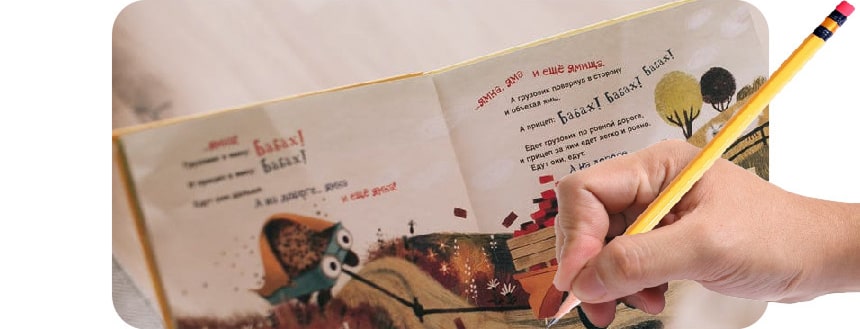 ...ямка!
Грузовик в ямку
Бабах!
И прицеп в ямку
Бабах!
Едут они дальше.
А на дороге... ямка
и ещё ямка!
...ямка, яма и ещё ямища.
А грузовик повернул в сторону
и объехал ямы.
А прицеп: Бабах! Бабах! Бабах!
Едет грузовик по ровной дороге,
и прицеп за ним едет легко и ровно.
Едут они, едут.
А на дороге